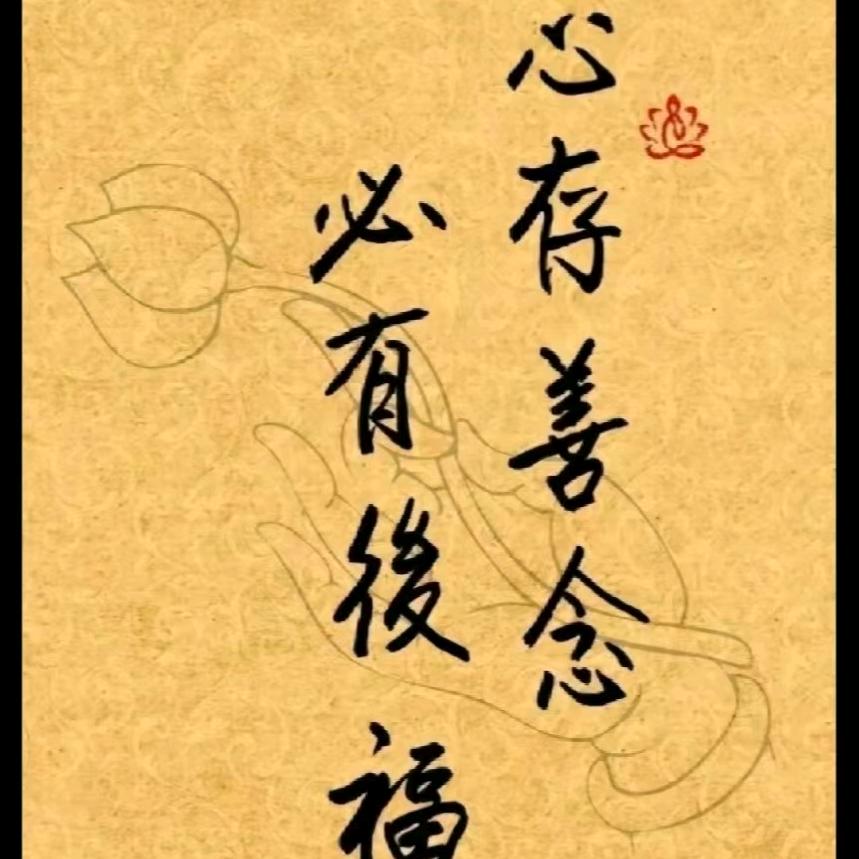 心存善念
必有後福